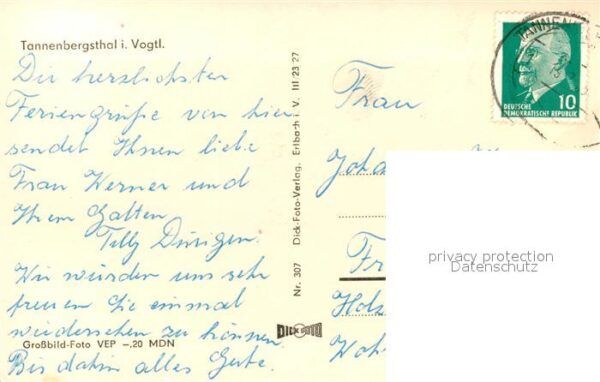 Tannenbergsthal i. Vogtl.
Die herzlichsten
Feriengrüße von hier
sendet Ihnen liebe
Frau Werner und
Ihrem Gatten
Tilly Dürigen.
Wir würden uns sehr
freuen Sie einmal
wiedersehen zu können.
Bis dahin alles Gute.
Großbild-Foto VEP –,20 MDN
Nr. 307 Dick-Foto-Verlag, Erlbach i. V. III 23 27
DICK
TANNEN
DEUTSCHE
DEMOKRATISCHE REPUBLIK
10
Frau
Joha
Fr
Holz
Woh
privacy protection
Datenschutz